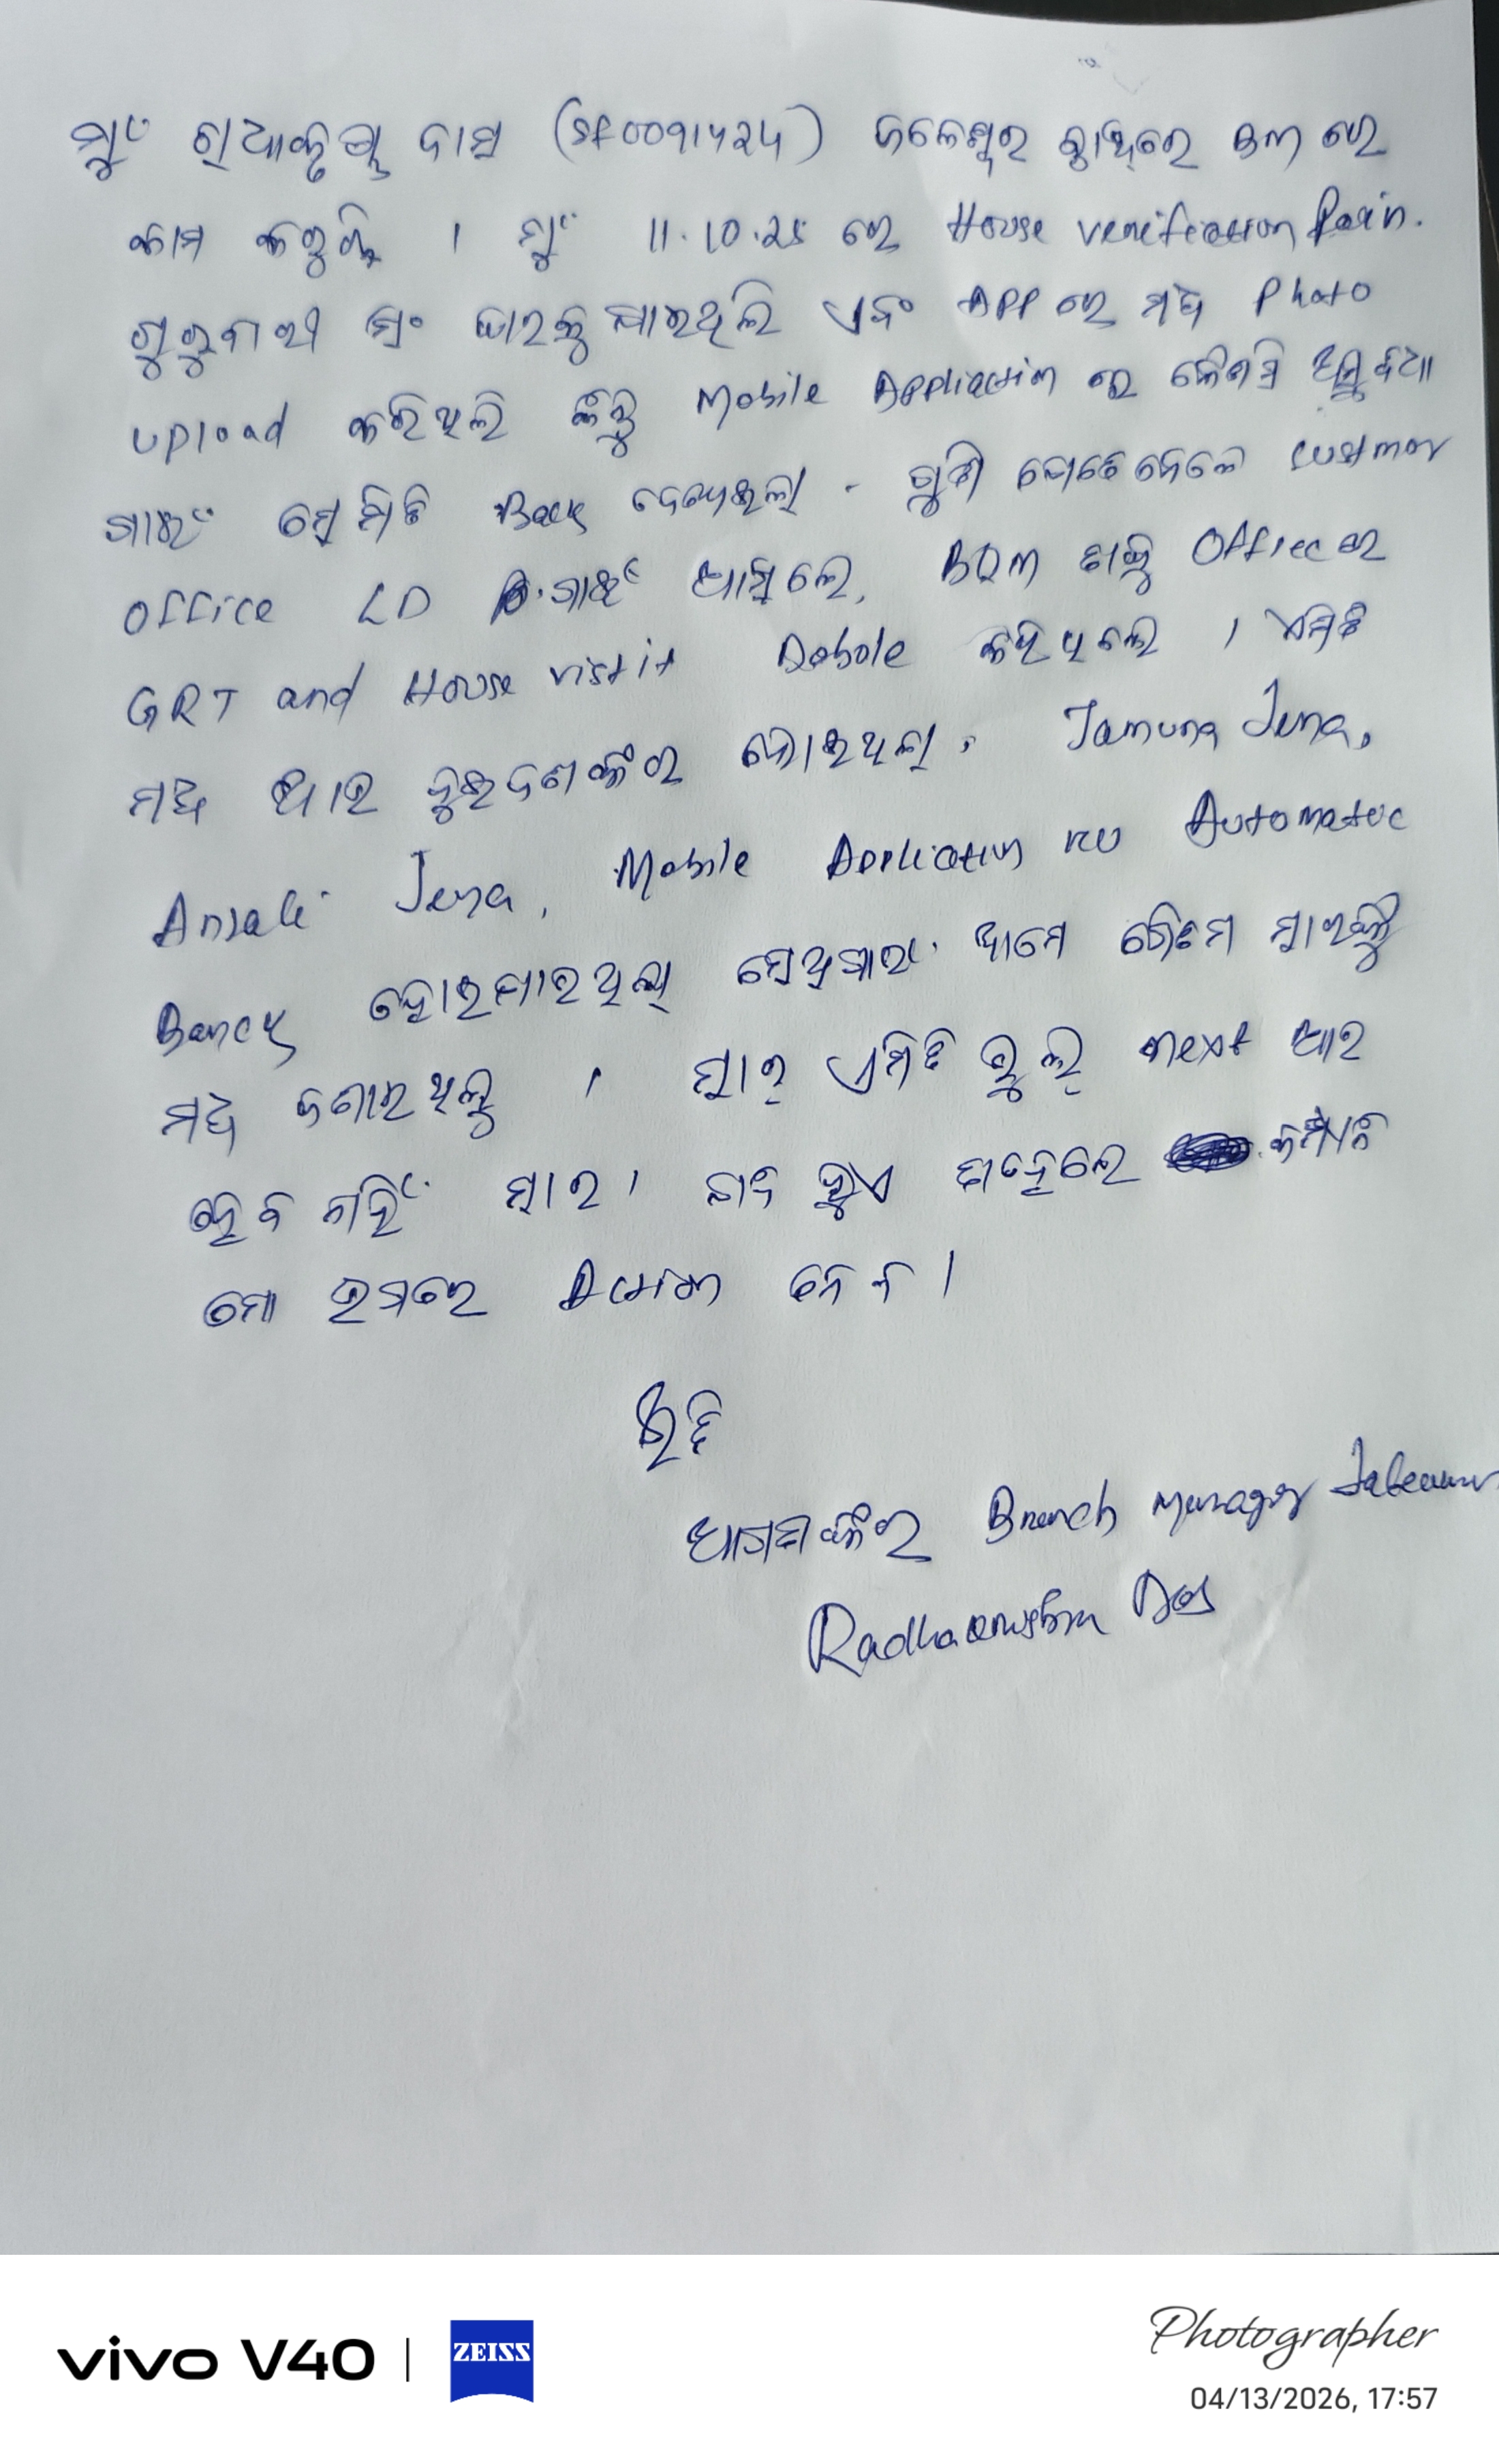 ମୁଂ ରାଧାକୃଷ୍ଣ ଦାସ (SF0091424) ଜଳେଶ୍ୱର ବ୍ରାଞ୍ଚରେ BM ରେ
କାମ କରୁଛି । ମୁଂ 11.10.25 ରେ House verification
ଗୁରୁବାରୀ ସିଂ ଘରକୁ ଯାଇଥିଲି ଏବଂ APP ରେ ମଧ୍ୟ Photo
upload କରିଥିଲି କିନ୍ତୁ Mobile Application ରେ କୌଣସି ଅସୁବିଧା
ପାଇଂ ସେମିତି Back ଦେଖାଇଲା . custmor
office LD ପାଇଂ ଆସିଲେ, BQM ତାକୁ Office ରେ
GRT and House vistit Dobole କରିଥିଲେ । ଏମିତି
ମଧ୍ୟ ଆଉ ଦୁଇଜଣଙ୍କର ହୋଇଥିଲା, Jamuna Jena,
Anjali Jena, Mobile Application ru Automatic
Banck ହୋଇଯାଇଥିଲା ସେଥିପାଇଂ ଆମେ ସାରଙ୍କୁ
ମଧ୍ୟ ଜଣାଇଥିଲୁ । ସାର୍ ଏମିତି ଭୁଲ୍ next ଆଉ
ହେବ ନାହିଁ ସାର । ଯଦି ହୁଏ ତାହେଲେ କମ୍ପାନି
ମୋ ଉପରେ Action ନେବ ।
ଇତି
ଆପଣଙ୍କର Branch Manager
Radhakrushna Das
vivo V40 | ZEISS
Photographer
04/13/2026, 17:57